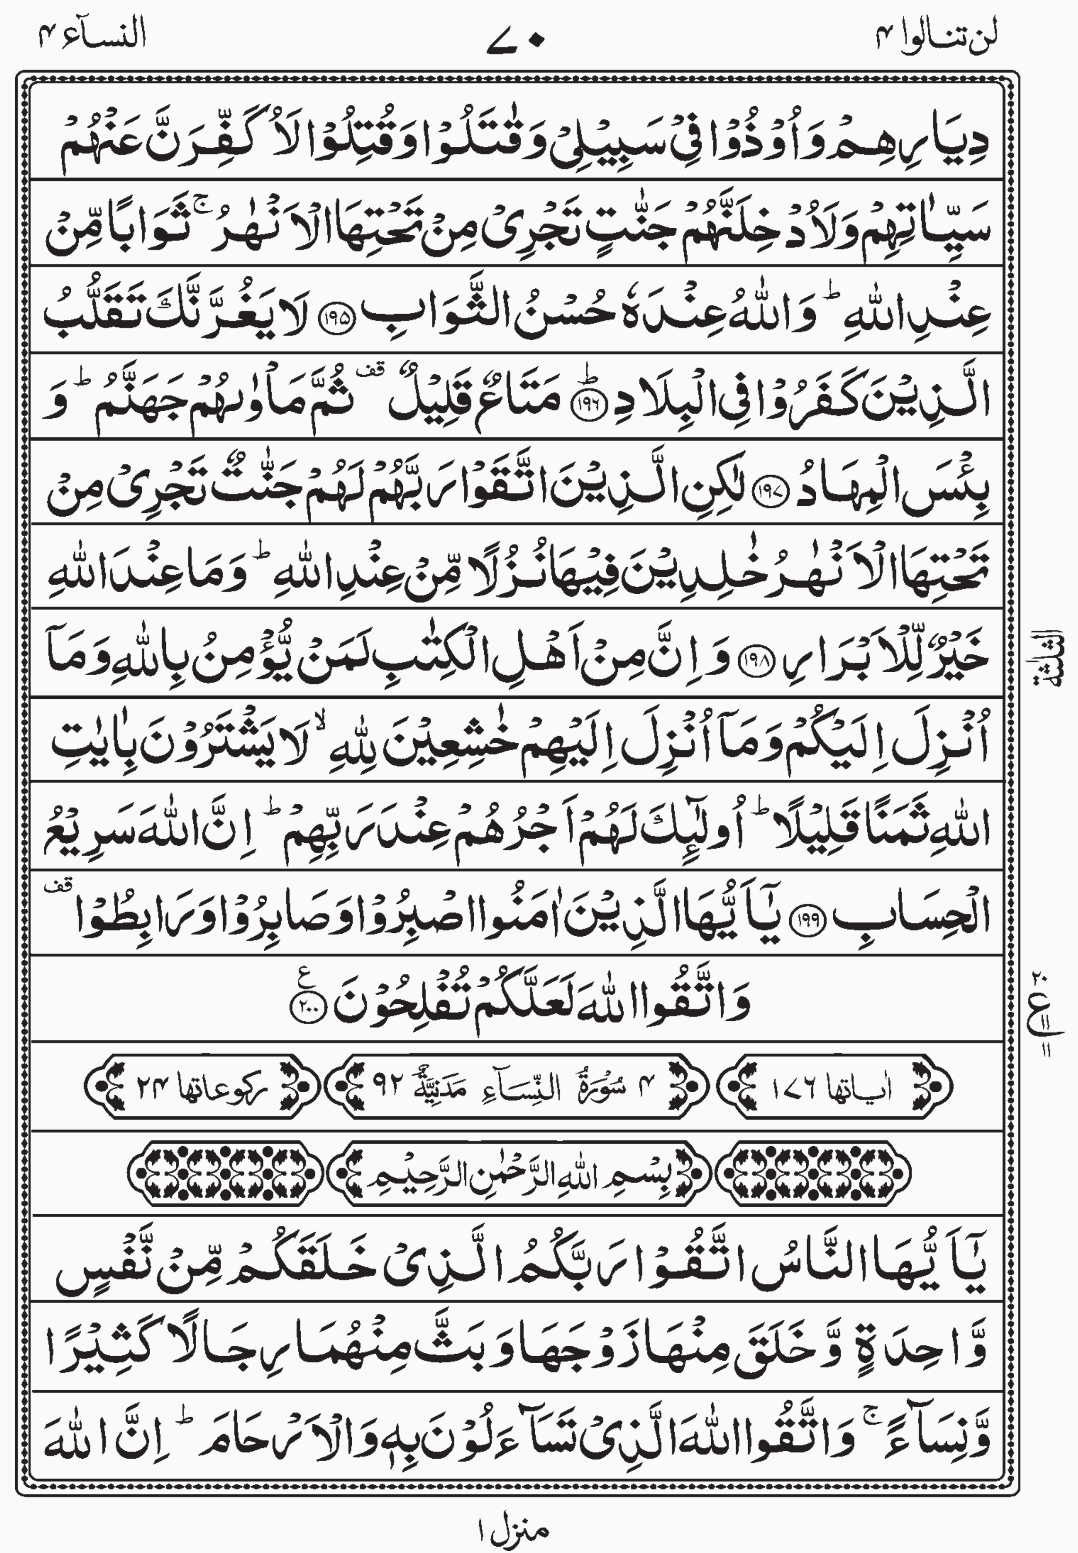 لن تنالوا ۴ ۷۰ النسآء ۴
دِيَارِهِمْ وَاُوْذُوْا فِيْ سَبِيْلِيْ وَقٰتَلُوْا وَقُتِلُوْا لَاُكَفِّرَنَّ عَنْهُمْ
سَيِّاٰتِهِمْ وَلَاُدْخِلَنَّهُمْ جَنّٰتٍ تَجْرِيْ مِنْ تَحْتِهَا الْاَنْهٰرُ ۚ ثَوَابًا مِّنْ
عِنْدِ اللّٰهِ ؕ وَاللّٰهُ عِنْدَهٗ حُسْنُ الثَّوَابِ ۝۱۹۵ لَا يَغُرَّنَّكَ تَقَلُّبُ
الَّذِيْنَ كَفَرُوْا فِي الْبِلَادِ ؕ۝۱۹۶ مَتَاعٌ قَلِيْلٌ قف ثُمَّ مَاْوٰىهُمْ جَهَنَّمُ ؕ وَ
بِئْسَ الْمِهَادُ ۝۱۹۷ لٰكِنِ الَّذِيْنَ اتَّقَوْا رَبَّهُمْ لَهُمْ جَنّٰتٌ تَجْرِيْ مِنْ
تَحْتِهَا الْاَنْهٰرُ خٰلِدِيْنَ فِيْهَا نُزُلًا مِّنْ عِنْدِ اللّٰهِ ؕ وَمَا عِنْدَ اللّٰهِ
خَيْرٌ لِّلْاَبْرَارِ ۝۱۹۸ وَاِنَّ مِنْ اَهْلِ الْكِتٰبِ لَمَنْ يُّؤْمِنُ بِاللّٰهِ وَمَآ
الثلثة
اُنْزِلَ اِلَيْكُمْ وَمَآ اُنْزِلَ اِلَيْهِمْ خٰشِعِيْنَ لِلّٰهِ ۙ لَا يَشْتَرُوْنَ بِاٰيٰتِ
اللّٰهِ ثَمَنًا قَلِيْلًا ؕ اُولٰٓئِكَ لَهُمْ اَجْرُهُمْ عِنْدَ رَبِّهِمْ ؕ اِنَّ اللّٰهَ سَرِيْعُ
الْحِسَابِ ۝۱۹۹ يٰٓاَيُّهَا الَّذِيْنَ اٰمَنُوا اصْبِرُوْا وَصَابِرُوْا وَرَابِطُوْا قف
وَاتَّقُوا اللّٰهَ لَعَلَّكُمْ تُفْلِحُوْنَ ۝۲۰۰ ع
۲۰
ع ۱۱
۱۱
اٰياتها ۱۷۶ ۴ سُوْرَةُ النِّسَآءِ مَدَنِيَّةٌ ۹۲ ركوعاتها ۲۴
بِسْمِ اللّٰهِ الرَّحْمٰنِ الرَّحِيْمِ
يٰٓاَيُّهَا النَّاسُ اتَّقُوْا رَبَّكُمُ الَّذِيْ خَلَقَكُمْ مِّنْ نَّفْسٍ
وَّاحِدَةٍ وَّخَلَقَ مِنْهَا زَوْجَهَا وَبَثَّ مِنْهُمَا رِجَالًا كَثِيْرًا
وَّنِسَآءً ۚ وَاتَّقُوا اللّٰهَ الَّذِيْ تَسَآءَلُوْنَ بِهٖ وَالْاَرْحَامَ ؕ اِنَّ اللّٰهَ
منزل ۱